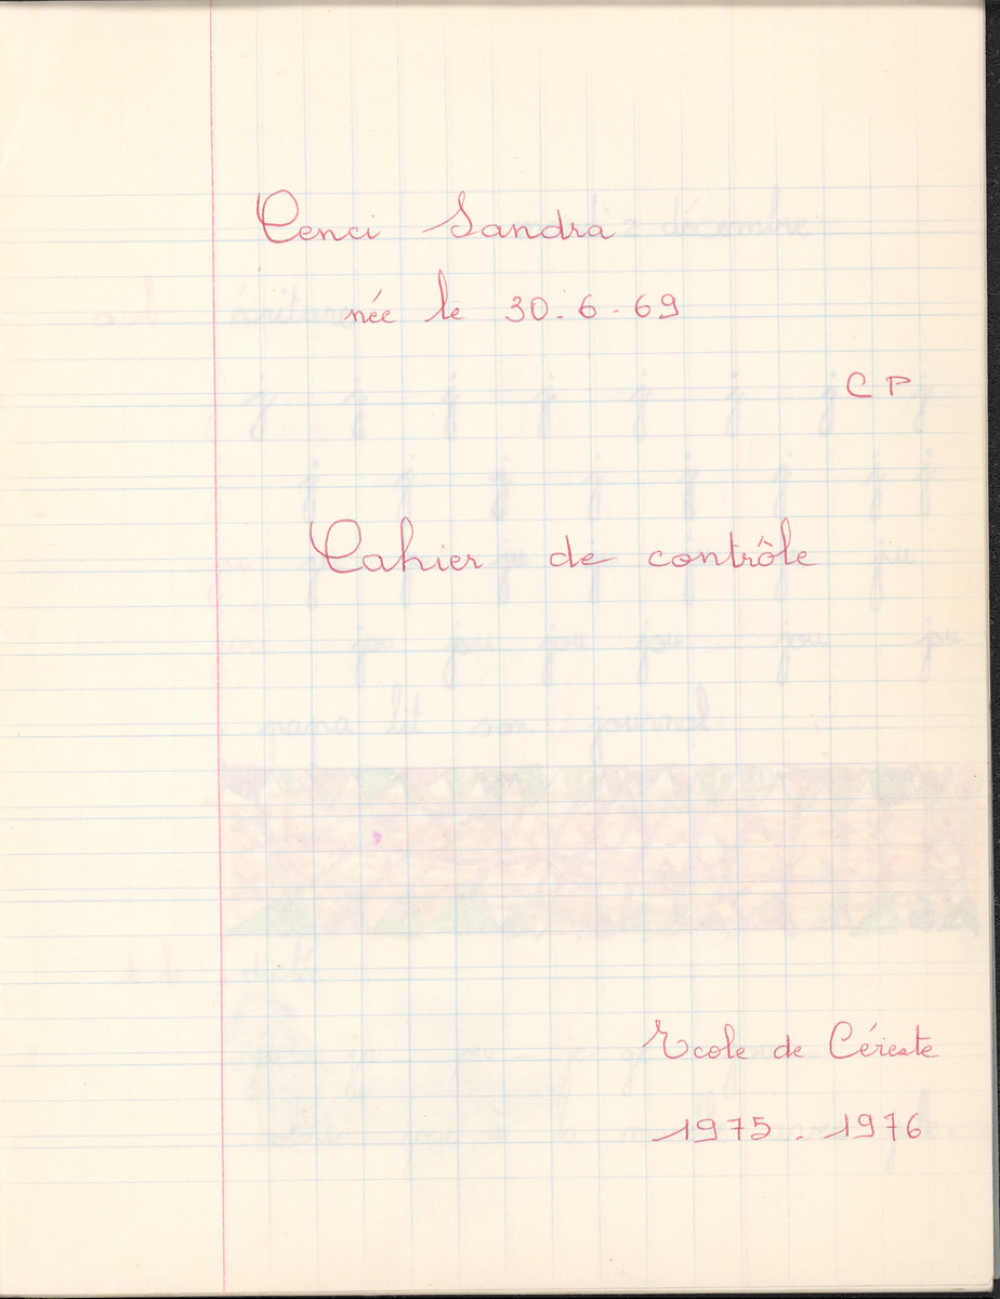 Cenci Sandra
née le 30.6.69
CP
Cahier de contrôle
Ecole de Céreste
1975.1976